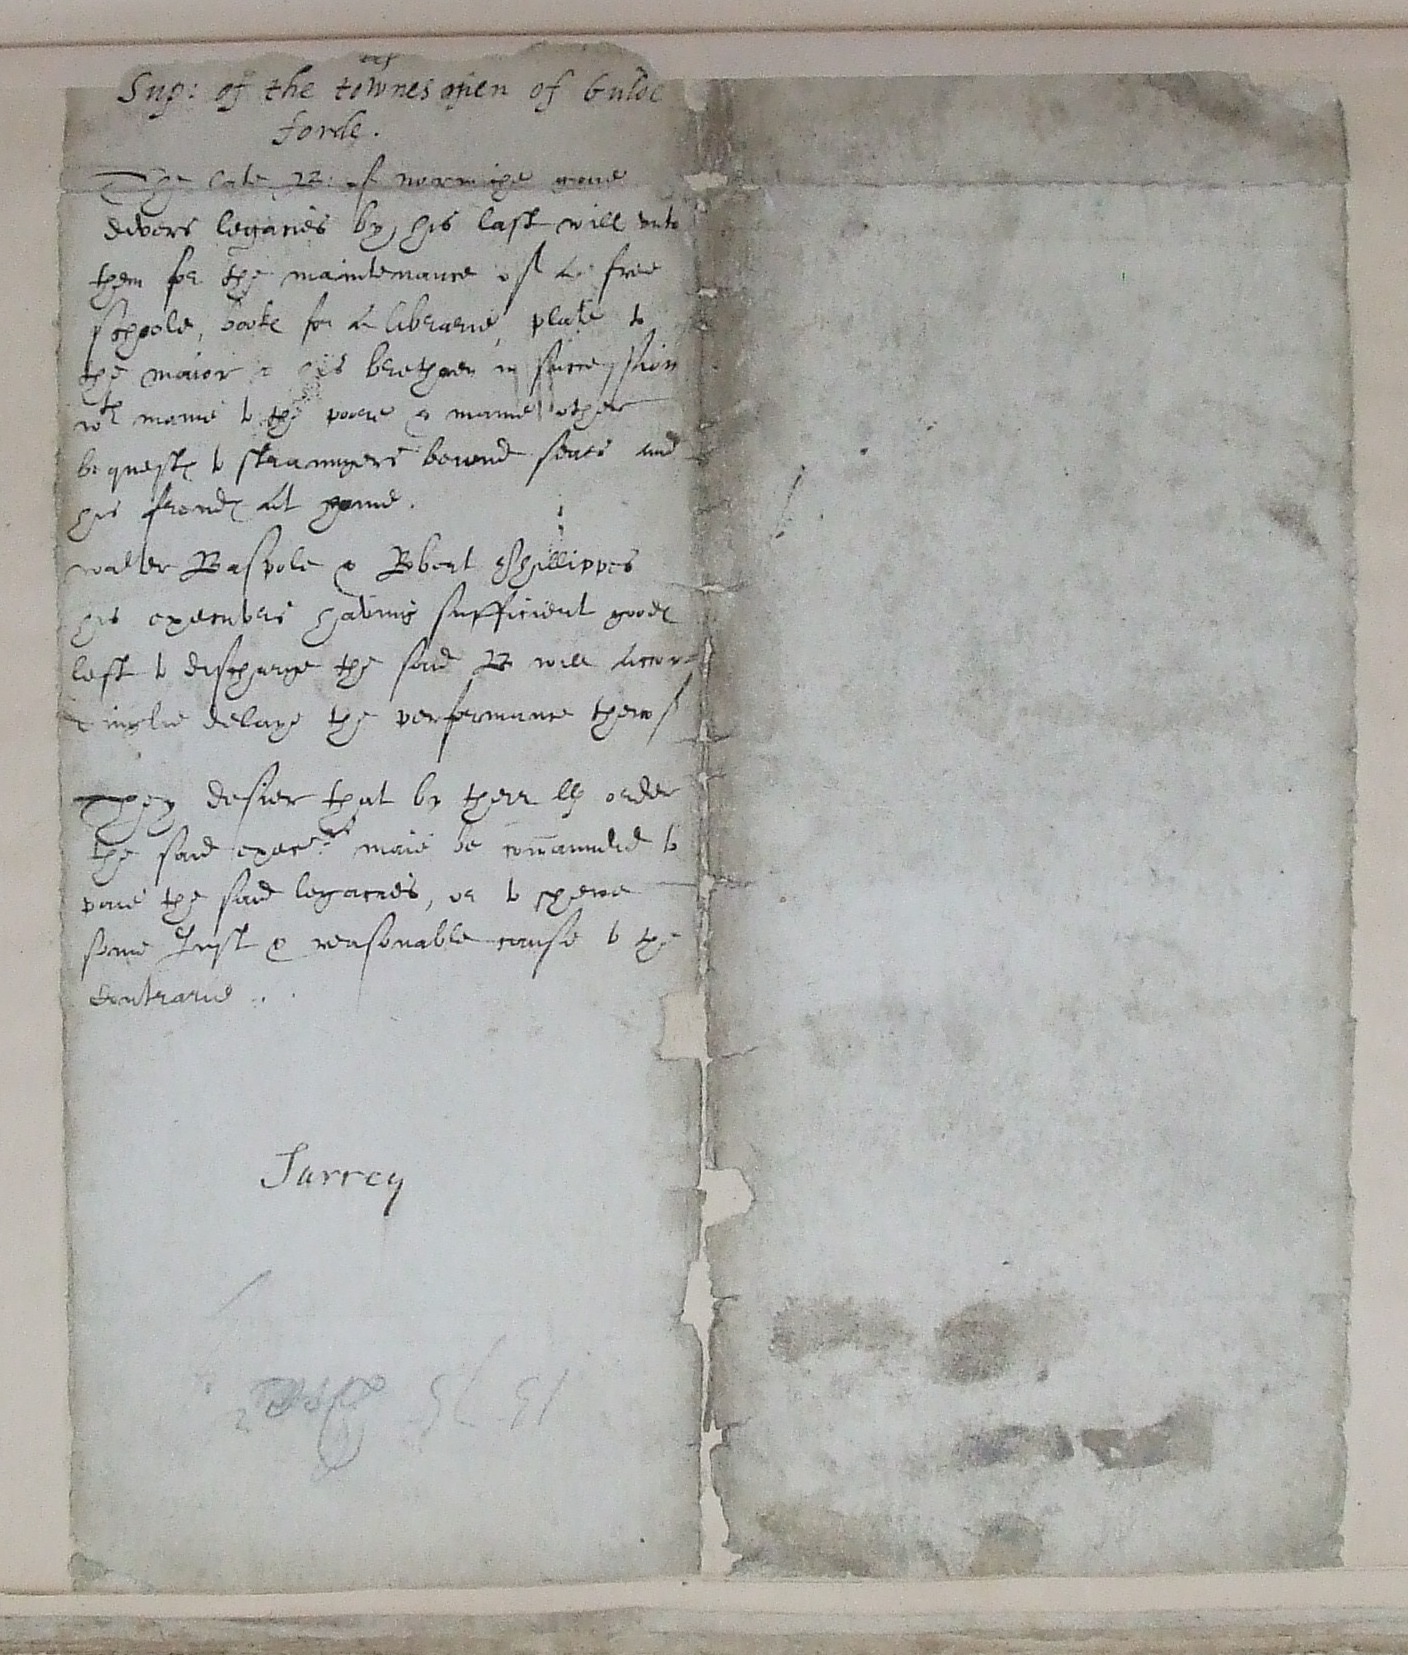 Sup: of the townesmen of Gulde
forde.
The late B: of norwiche gave
divers legacies by his last will unto
them for the maintenance of a free
schoole, books for a librarie, plate to
the maior & his brethren in succession
wth monie to the poore & manie other
bequests to straungers beyond seaes and
his frends at home.
walter Baspole & Robert Phillippes
his executors having sufficient goods
left to discharge the said B will accor
dinglie delaye the performance therof
They desier that by there llps order
the said execrs maie be commaunded to
paie the said legacies, or to shewe
some Just & reasonable cause to the
contrarie ..
Surrey